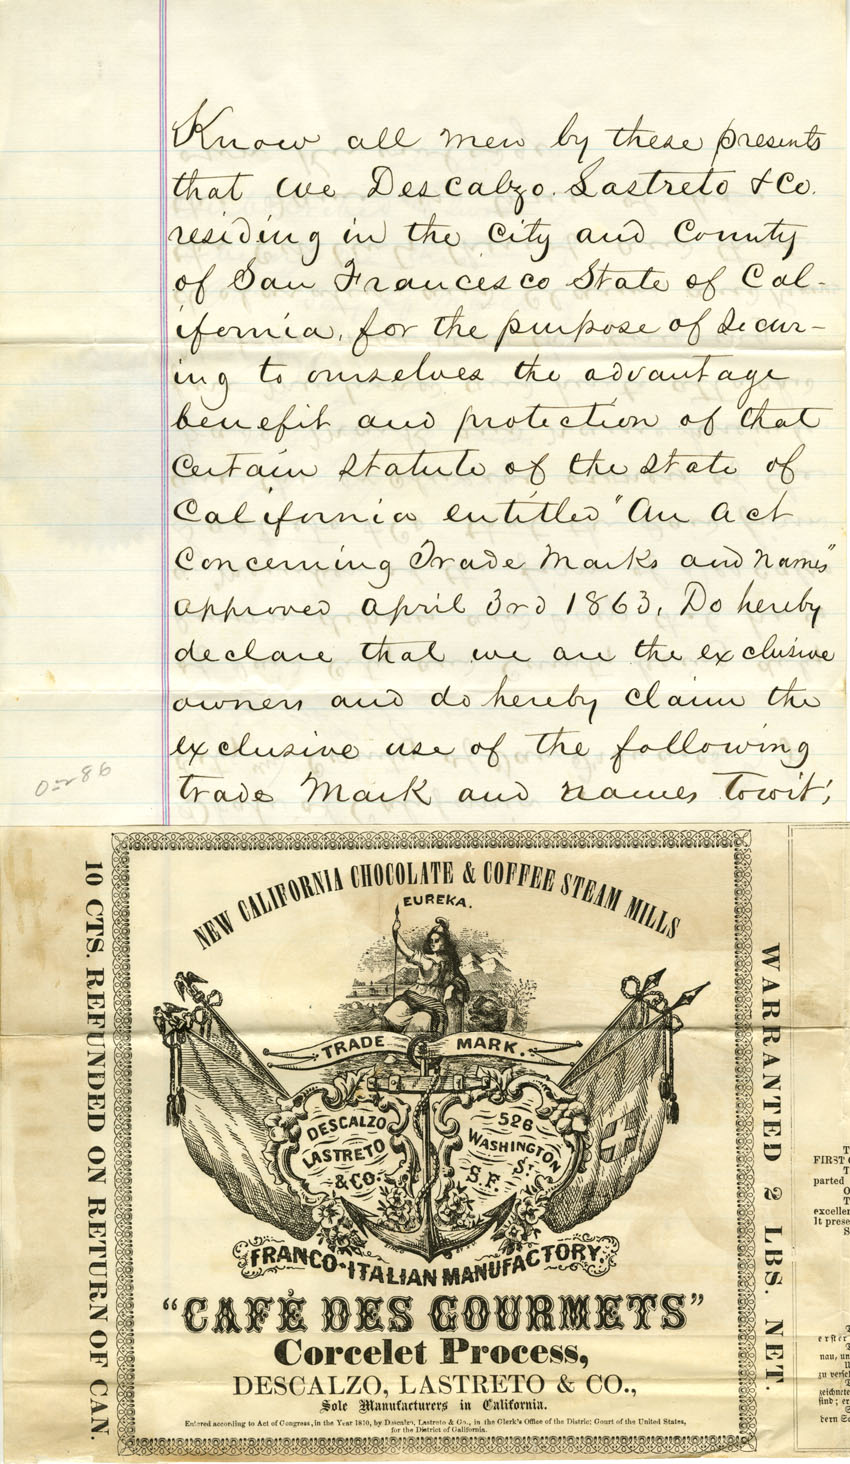 Know all men by these presents
that we Descalzo. Lastreto & Co.
residing in the city and County
of San Francisco State of Cal-
ifornia, for the purpose of secur-
ing to ourselves the advantage
benefit and protection of that
certain statute of the state of
California entitled "An act
concerning Trade Marks and names"
approved april 3rd 1863, Do hereby
declare that we are the exclusive
owners and do hereby claim the
exclusive use of the following
trade Mark and names Towit;
10 CTS. REFUNDED ON RETURN OF CAN.
NEW CALIFORNIA CHOCOLATE & COFFEE STEAM MILLS
EUREKA.
TRADE MARK.
DESCALZO
LASTRETO
& CO.
526
WASHINGTON
St.
S.F.
FRANCO-ITALIAN MANUFACTORY.
"CAFÉ DES GOURMETS"
Corcelet Process,
DESCALZO, LASTRETO & CO.,
Sole Manufacturers in California.
Entered according to Act of Congress, in the Year 1870, by Descalzo, Lastreto & Co., in the Clerk's Office of the District Court of the United States,
for the District of California.
WARRANTED 2 LBS. NET.
T
FIRST
T
parted
O
T
excellen
It prese
S
erster
nau, un
zu versch
zeichnete
sind; er
dern So